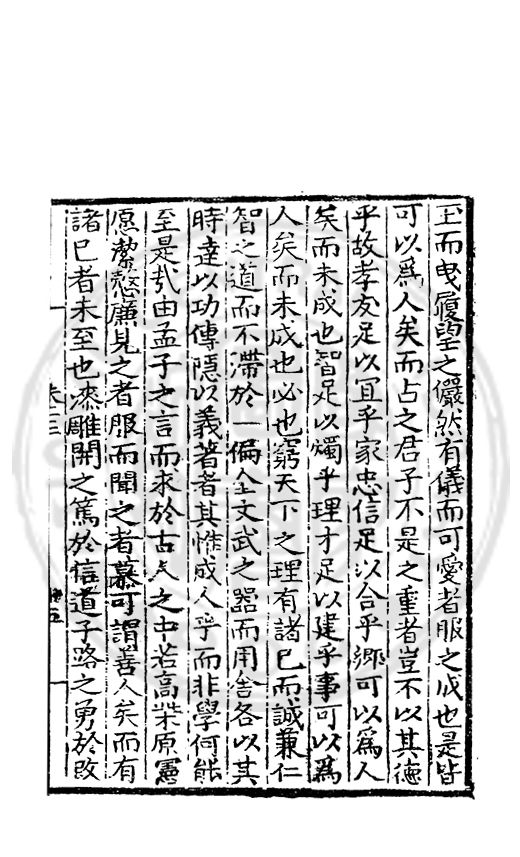 玉而曳履望之儼然有儀而可愛者服之成也是皆
可以爲人矣而占之君子不是之重者豈不以其德
乎故孝友足以宜乎家忠信足以合乎鄉可以爲人
矣而未成也智足以燭乎理才足以建乎事可以爲
人矣而未成也必也窮天下之理有諸己而誠兼仁
智之道而不滯於一偏全文武之器而用舍各以其
時達以功傳隱以義著者其惟成人乎而非學何能
至是㢤由孟子之言而求於古人之中若高柴原憲
愿潔慤廉見之者服而聞之者慕可謂善人矣而有
諸己者未至也漆雕開之篤於信道子路之勇於改
卷三